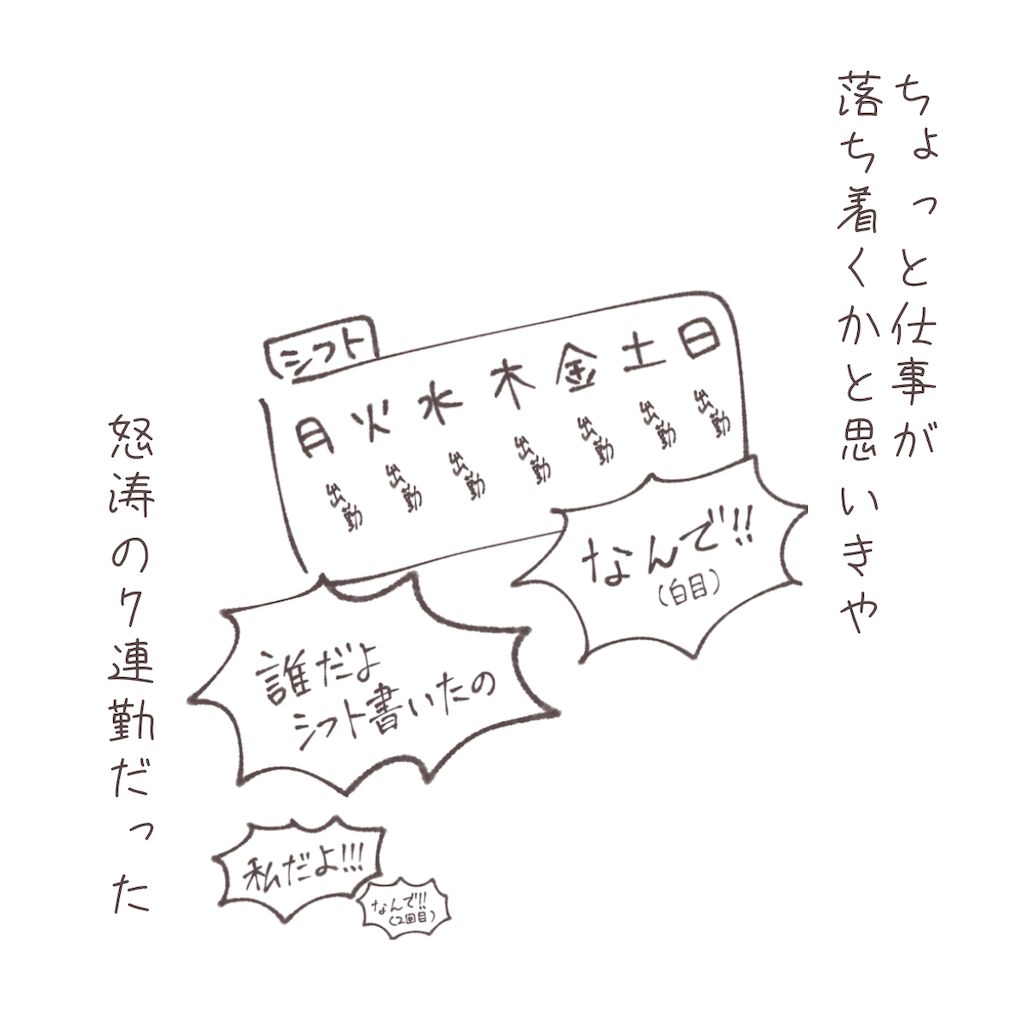 ちょっと仕事が
落ち着くかと思いきや
シフト
月 火 水 木 金 土 日
出勤 出勤 出勤 出勤 出勤 出勤 出勤
なんで!!
(白目)
誰だよ
シフト書いたの
私だよ!!!
なんで!!
(2回目)
怒涛の7連勤だった